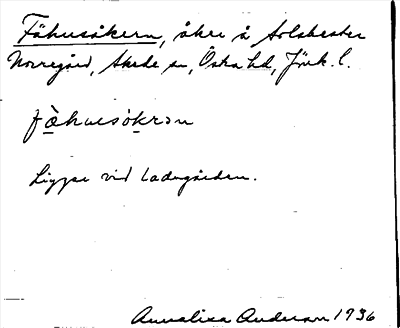 Fähusåkern, åker å Solsbester
Norregård, Skede sn, Östra hd, Jönk. l.
fä̀hu̇såkrən
Ligger vid ladugården.
Annalisa Anderson 1936